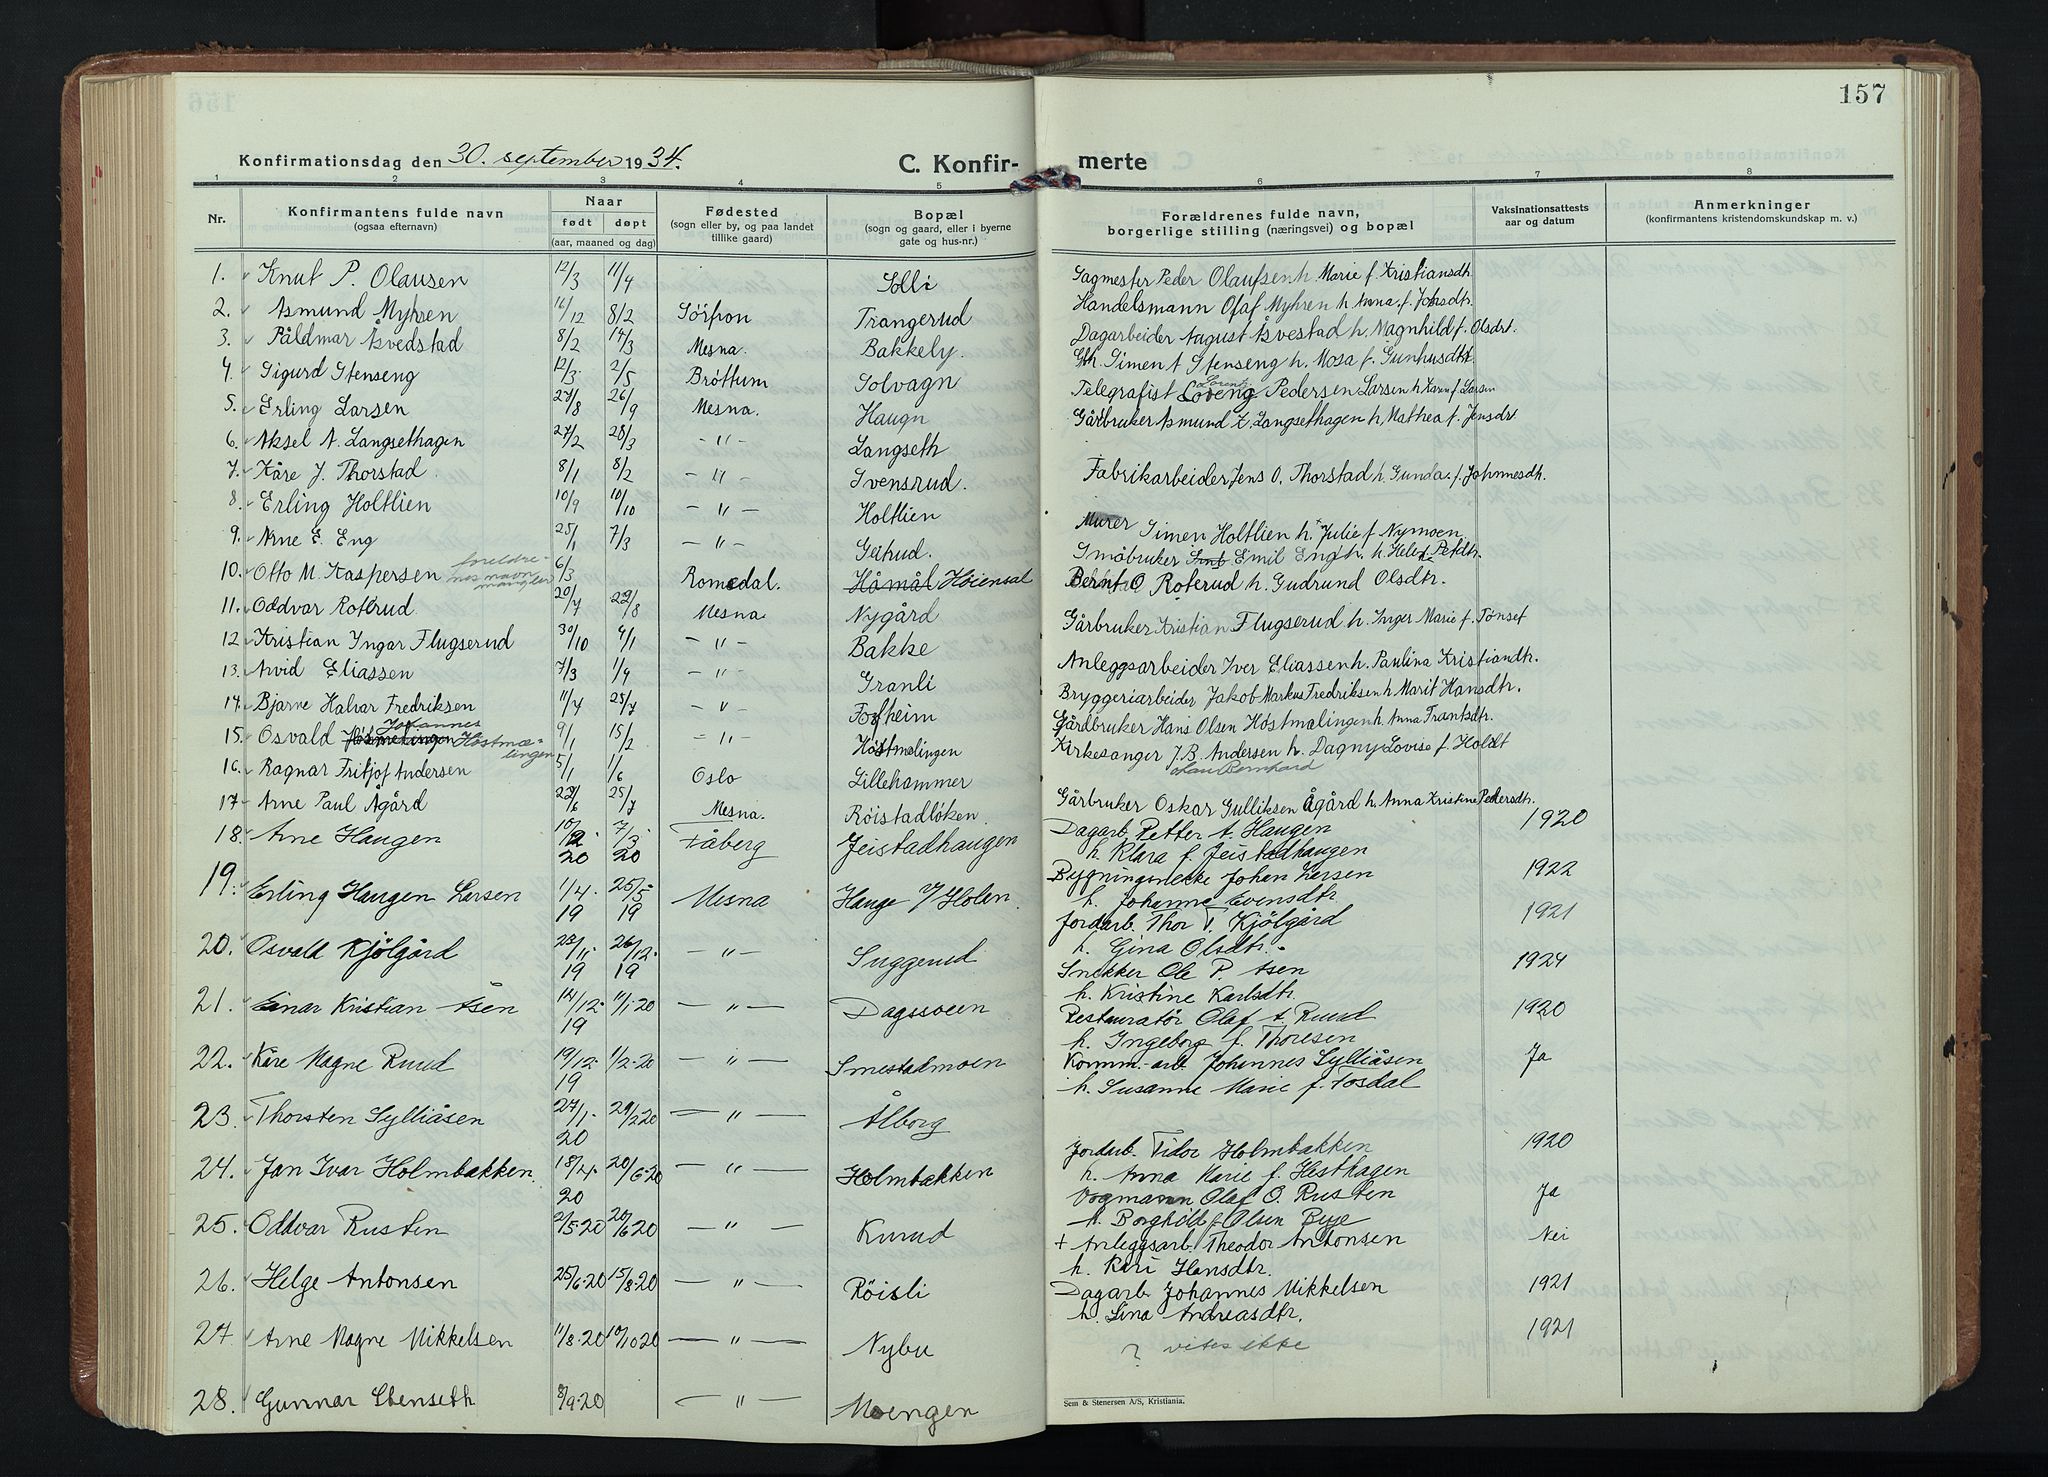 157
Konfirmationsdag den 30. september 1934.
C. Konfirmerte
1 2 3 4 5 6 7 8
Nr.
Konfirmantens fulde navn
(ogsaa efternavn)
Naar
født døpt
(aar, maaned og dag)
Fødested
(sogn eller by, og paa landet
tillike gaard)
Bopæl
(sogn og gaard, eller i byerne
gate og hus-nr.)
Forældrenes fulde navn,
borgerlige stilling (næringsvei) og bopæl
Vaksinationsattests
aar og datum
Anmerkninger
(konfirmantens kristendomskundskap m. v.)
1. Knut P. Olausen 12/3 11/4 Solli
2. Asmund Myhren 16/12 8/2 Sörfron Trangerud
3. Påldmar Åsvedstad 8/2 14/3 Mesna. Bakkely.
4. Sigurd Stenseng 12/3 2/5 Bröttum Solvagn
5. Erling Larsen 27/8 26/9 Mesna. Haugn
6. Aksel A. Langsethagen 27/2 28/3 -"- Langseth
7. Kåre J. Thorstad 8/1 8/2 -"- Svensrud.
8. Erling Holtlien 10/9 10/10 -"- Holtlien
9. Arne E. Eng 25/1 7/3 -"- Getrud.
10. Otto M. Kaspersen foreldre-nes navn mangler 6/3 Romedal. Håmål Höiensal
11. Oddvar Roterud 20/7 22/8 Mesna Nygård
12 Kristian Ingar Flugserud 30/10 4/1 -"- Bakke
13. Arvid Eliassen 7/3 1/9 -"- Granli
14. Bjarne Halvar Fredriksen 11/4 25/7 -"- Forfheim
15. Osvald Johannes Höstmælingen 9/1 15/2 -"- Höstmelingen
16. Ragnar Fritjof Andersen 5/1 1/6 Oslo Lillehammer
17. Arne Paul Ågård 22/6 25/7 Mesna. Röistadlöken.
18. Arne Haugen 10/12 20 7/3 20 Fåberg Jeistadhaugen
19. Erling Haugen Larsen 1/4. 19 25/5 19 Mesna Hauge v/ Holen
20. Osvald Kjölgård 23/11 19 26/12. 19 -"- Suggerud
21. Einar Kristian Åsen 14/12. 19 11/1.20 -"- Dagssveen
22. Kåre Magne Ruud 19/12. 19 1/2.20 -"- Smestadmoen
23. Thorsten Sylliåsen 27/1. 20 29/2 20 -"- Ålborg
24. Jan Ivar Holmbakken. 18/4. 20 20/6.20 -"- Holmbakken
25. Oddvar Rusten 2/5.20 20/6 20 -"- Kurud
26. Helge Antonsen 25/6.20 15/8.20 -"- Röisli
27. Arne Magne Mikkelsen 11/8.20 10/10 20 -"- Nybu
28. Gunnar Stenseth 8/9.20 -"- Moengen
Sagmester Peder Olaufsen h. Marie f. Kristiansdh.
Handelsmann Olaf Myhren h Anna f. Johsdtr.
Dagarbeider August Åsvestad h. Magnhild f. Olsdrt.
Gbr. Simen A Stenseng h. Mosa f. Gunhusdtr.
Telegrafist Lorentz Pedersen Larsen h Karen f Larsen
Gårbruker Asmund L. Langsethagen h, Mathea f. Jensdrt
Fabrikarbeider Jens O. Thorstad h. Gunda. f. Johnnesdh.
Murer Simen Holtlien h. Julie f Nymoen
Småbruker Emil Eng h. Helen Petdtr.
Bernt O Roterud h. Gudrund Olsdtr.
Gårbruker Kristian Flugserud h. Inger Marie f. Tønset
Anleggsarbeider Iver Eliassen h. Paulina Kristiandh.
Bryggeriarbeider Jakob Markus Fredriksen h Marit Hansdtr.
Gårdbruker Hans Olsen Höstmalingen h. Anna Frantsdtr.
Kirkesanger J. B. Andersen h. Dagny Lovise f. Holdt
ohan Bernhard
Gårbruker Oskar Gulliksen Ågård h. Anna Kristine Pedersdtr.
Dagarb. Petter A. Haugen 1920
h. Klara f. Jeistadhaugen
Bygningssnekke Johan Larsen 1922
h. Johanna Evensdtr.
Jordarb. Thor T. Kjölgård 1921
h. Gina Olsdtr.
Snekker Ole P. Åsen 1924
h. Kristine Karlsdtr.
Restauratør Olaf A Ruud 1920
h. Ingeborg f. Thoresen
Komm.-arb. Johannes Sylliåsen Ja
h. Susanne Marie f. Fosdal
Jordarb. Tidor Holmbakken 1920
h. Anna Marie f. Hesthagen
Vogmann Olaf O. Rusten Ja
h. Borghild f Olsen Bye
+ Anleggsarb. Theodor Antonsen Nei
h. Kari Hansdtr.
Dagarb Johannes Mikkelsen 1921
h. Lina Andreasdtr.
? vites ikke 1921
Sem & Stenersen A/S, Kristiania.